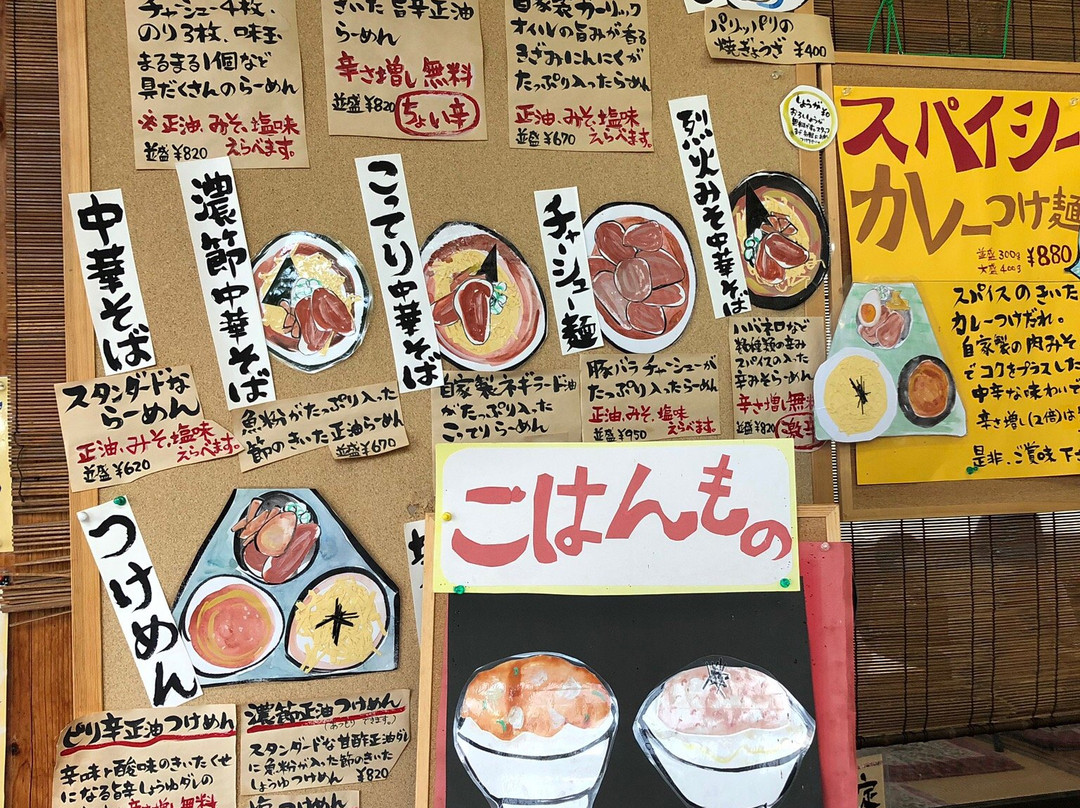 チャシュー4枚、
のり3枚、味玉
まるまる1個など
具だくさんのらーめん
※正油、みそ、塩味
えらべます。
並盛¥820
きいた旨辛正油
らーめん
辛さ増し無料
並盛¥820
ちょい辛
自家製ガーリック
オイルの旨みが香る
きざみにんにくが
たっぷり入ったらーめん
正油、みそ、塩味
えらべます。
並盛¥670
パリッパリの
焼ぎょうざ ¥400
中華そば
スタンダードな
らーめん
正油、みそ、塩味
えらべます。
並盛¥620
濃節中華そば
魚粉がたっぷり入った
節のきいた正油らーめん
並盛¥670
こってり中華そば
自家製ネギラード油
がたっぷり入った
こってりらーめん
チャーシュー麺
豚バラチャーシューが
たっぷり入ったらーめん
正油、みそ、塩味
えらべます。
並盛¥950
烈火みそ中華そば
ハバネロなど
スパイスの入った
辛みそらーめん
辛さ増し無料
並盛¥820
激辛
スパイシー
カレーつけ麺
並盛300g
大盛400g
¥880
スパイスのきいた
カレーつけだれ。
自家製の肉みそ
でコクをプラスした
中辛な味わいで
辛さ増し(2倍)は
是非、ご賞味下さ
つけめん
ピリ辛正油つけめん
辛味と酸味のきいたくせ
になる旨辛しょうゆダレの
辛さ増し無料
濃節正油つけめん
スタンダードな甘酢正油ダレ
に魚粉が入った節のきいた
しょうゆつけめん
¥820
塩つけめん
ごはんもの
定